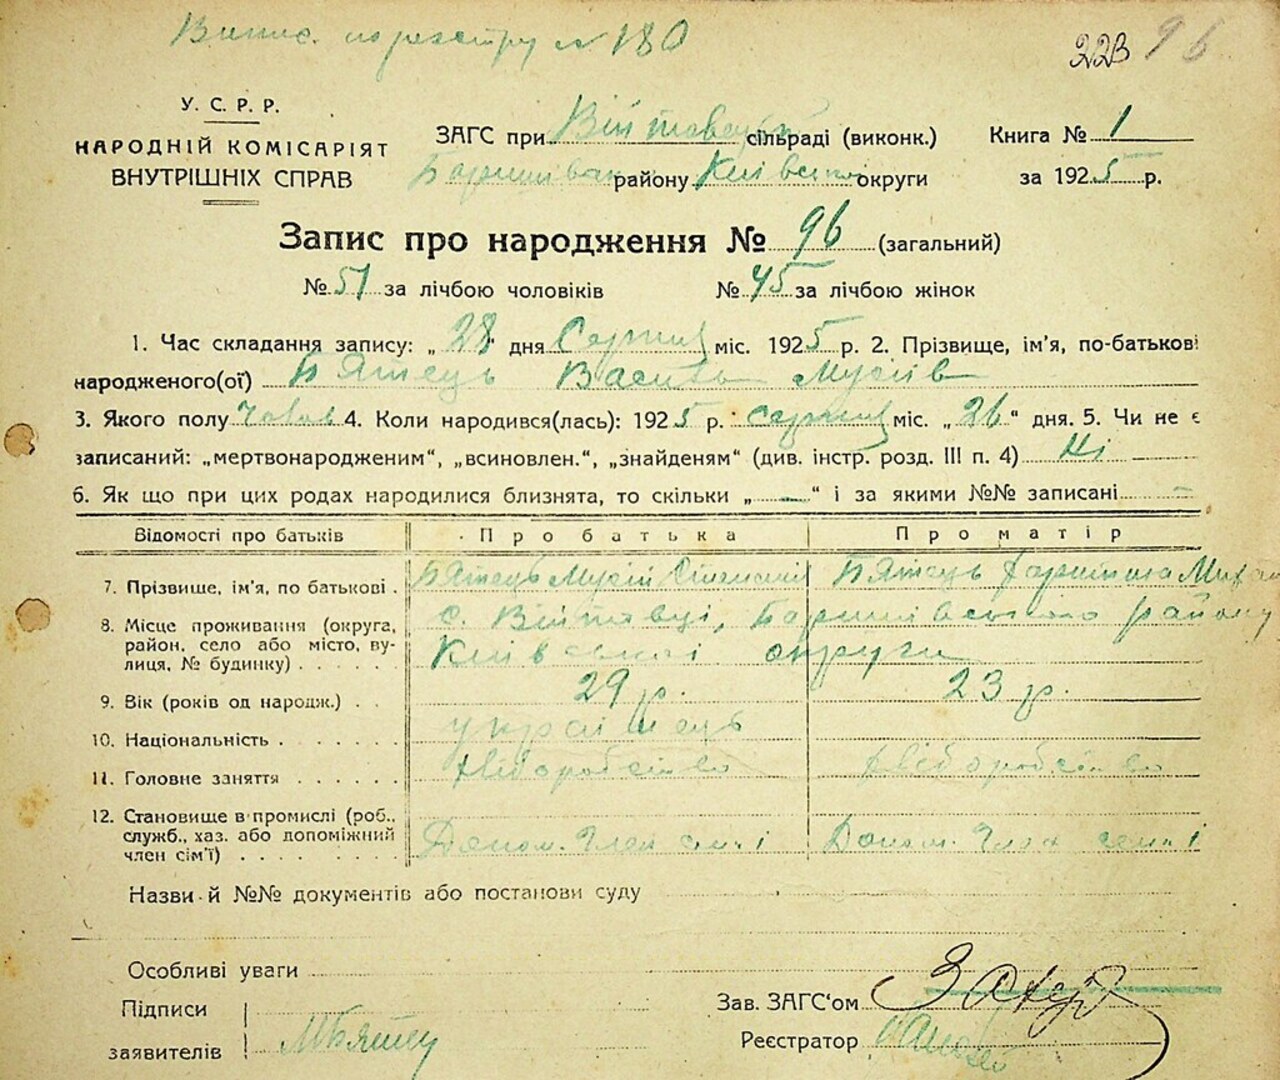 Випис. по реэстру № 180
223 96
У. С. Р. Р.
НАРОДНІЙ КОМІСАРІЯТ
ВНУТРІШНІХ СПРАВ
ЗАГС при Війтовецькій сільраді (виконк.)
Баришівськ району Київської округи
Книга № 1
за 1925 р.
Запис про народження № 96 (загальний)
№ 51 за лічбою чоловіків № 45 за лічбою жінок
1. Час складання запису: „28" дня Серпня міс. 1925 р. 2. Прізвище, ім'я, по-батькові
народженого(ої) Бятець Василь Мусіїв
3. Якого полу Чолов 4. Коли народився(лась): 1925 р. серпня міс. „26" дня. 5. Чи не є
записаний: „мертвонародженим", „всиновлен.", „знайденям" (див. інстр. розд. III п. 4) Ні
6. Як що при цих родах народилися близнята, то скільки „—" і за якими №№ записані —
Відомості про батьків Про батька Про матір
7. Прізвище, ім'я, по батькові . Бятець Мусій Бятець
8. Місце проживання (округа, район, село або місто, вулиця, № будинку) . . . . . с. Війтовці, Баришівського району
Київської округи
9. Вік (років од народж.) . . 29 р. 23 р.
10. Національність . . . . . . українець
11. Головне заняття . . . . . . хліборобство хліборобство
12. Становище в промислі (роб.,
служб., хаз. або допоміжний
член сім'ї) . . . . . . . . Допом. член сім'ї Допом. член сім'ї
Назви й №№ документів або постанови суду
Особливі уваги
Підписи
заявителів М Бятець
Зав. ЗАГС'ом
Реєстратор